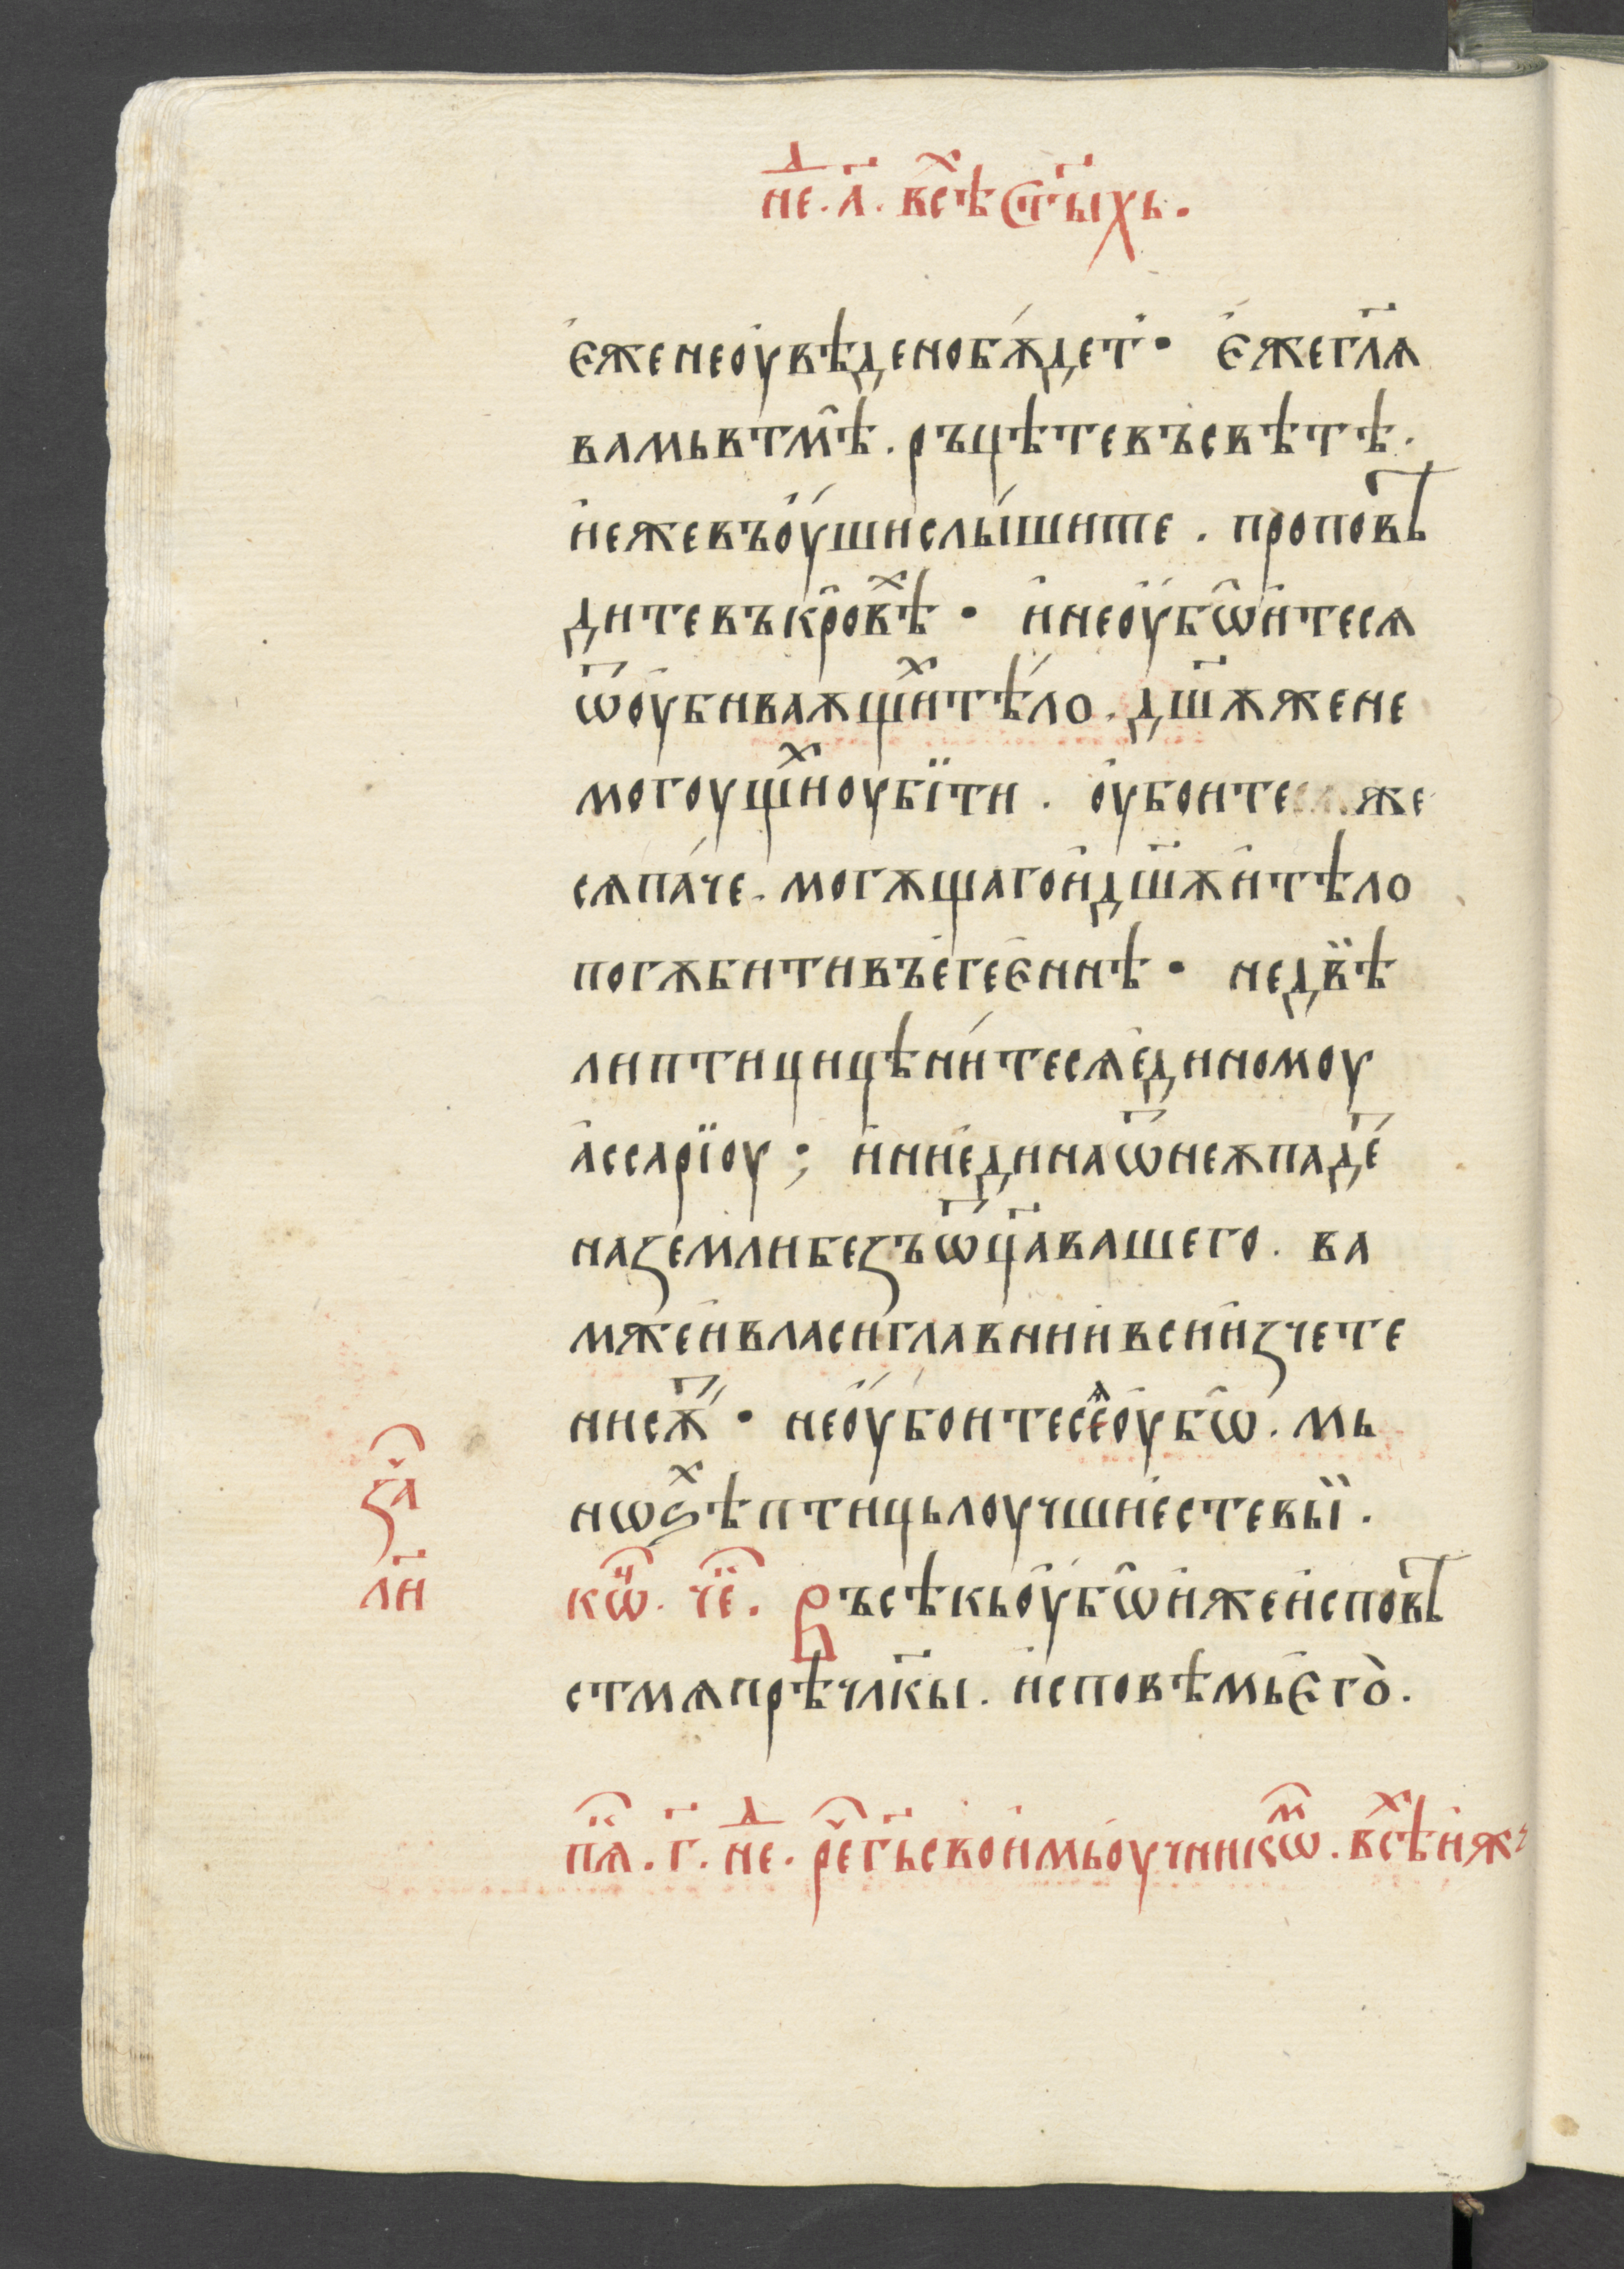 не҇ⷣ. а҃. всѣ҇ⷯ ст҃ыхь.
є҆же не оу҆вѣдено бѫ́дет҆. Є҆же гл҃ѧ
вамь в тм̑ѣ. ръцѣте въ свѣтѣ.
и҆ еже въ оу҆́ши слы́шите. проповѣ
дите въ кр̑овѣⷯ. и҆ не оу҆бѡ̑и҆тесѧ
ѿ оубиваѫщи́ⷯ тѣ́ло. дш҃ѫ же не
могоущиⷯ оубїти. оу҆боите же
сѧ па́че. могѫщаго и҆ дш҃ѫ и҆ тѣло
погѫбити въ е҆геє҆ннѣ. не двѣ̈
ли птици цѣни́тесѧ е҆диномоу
а҆ссарїоу; и҆ ни е҆дина ѿ неѫ паде́
на земли без ъѿц҃а вашего. ва
м же и҆ власи главнии҆ вси и҆зчете
ни сѫ҃. не оу҆́боитесеѧ оубѡ̑. мь
нѡѕѣⷯ птиць лоучши е҆сте вӹ.
за҇ч
л҃и
кѡⷩ҇. че҇. Въсѣкь оу҆бѡ̑ и҆же и҆сповѣ
ст мѧ прѣ чл҃кы. и҆сповѣмь є҆го̀.
пѧ҇ⷦ. г҃. не҇ⷣ. ре҇ г҃ь своимь оу҆чникѡⷨ҇. всѣ҇ⷯ и҆ж